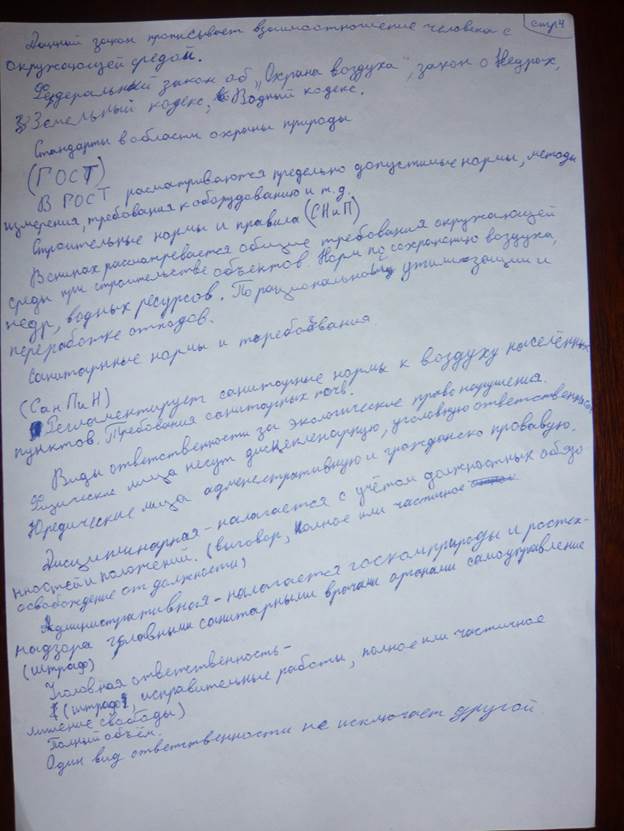 стр 4
Данный закон прописывает взаимоотношение человека с
окружающей средой.
Федеральный закон об „Охрана воздуха", закон о Недрах,
Земельный кодекс, Водный кодекс.
Стандарты в области охраны природы
(ГОСТ)
В ГОСТ расматриваются предельно допустимые нормы, методы
измерения, требования к оборудованию и т.д.
Строительные нормы и правила (СНиП)
В снипах расматревается общие требования окружающей
среды при строительстве объектов. Норм по сохранению воздуха,
недр, водных ресурсов. По рациональной утилизации и
переработке отходов.
Санитарные нормы и требования
(СанПиН)
Регламентирует санитарные нормы к воздуху населённых
пунктов. Требования санитарных почв.
Виды ответственности за экологические право нарушения.
Физические лица несут дисцепленарную, уголовную ответственность
Юредические лица адменестративную и гражданско провавую.
Дисциплинарная - налагается с учётом должностных обяза
нностей и положений. (выговор, полное или частичное
освобождение от должности)
Административная - налагается госкомприроды и ростех-
надзора главными санитарными врачами органами самоуправление
(штраф)
Уголовная ответственность -
(штраф, исправительные работы, полное или частичное
лишение свободы)
Полный объём.
Один вид ответственности не исключает другой